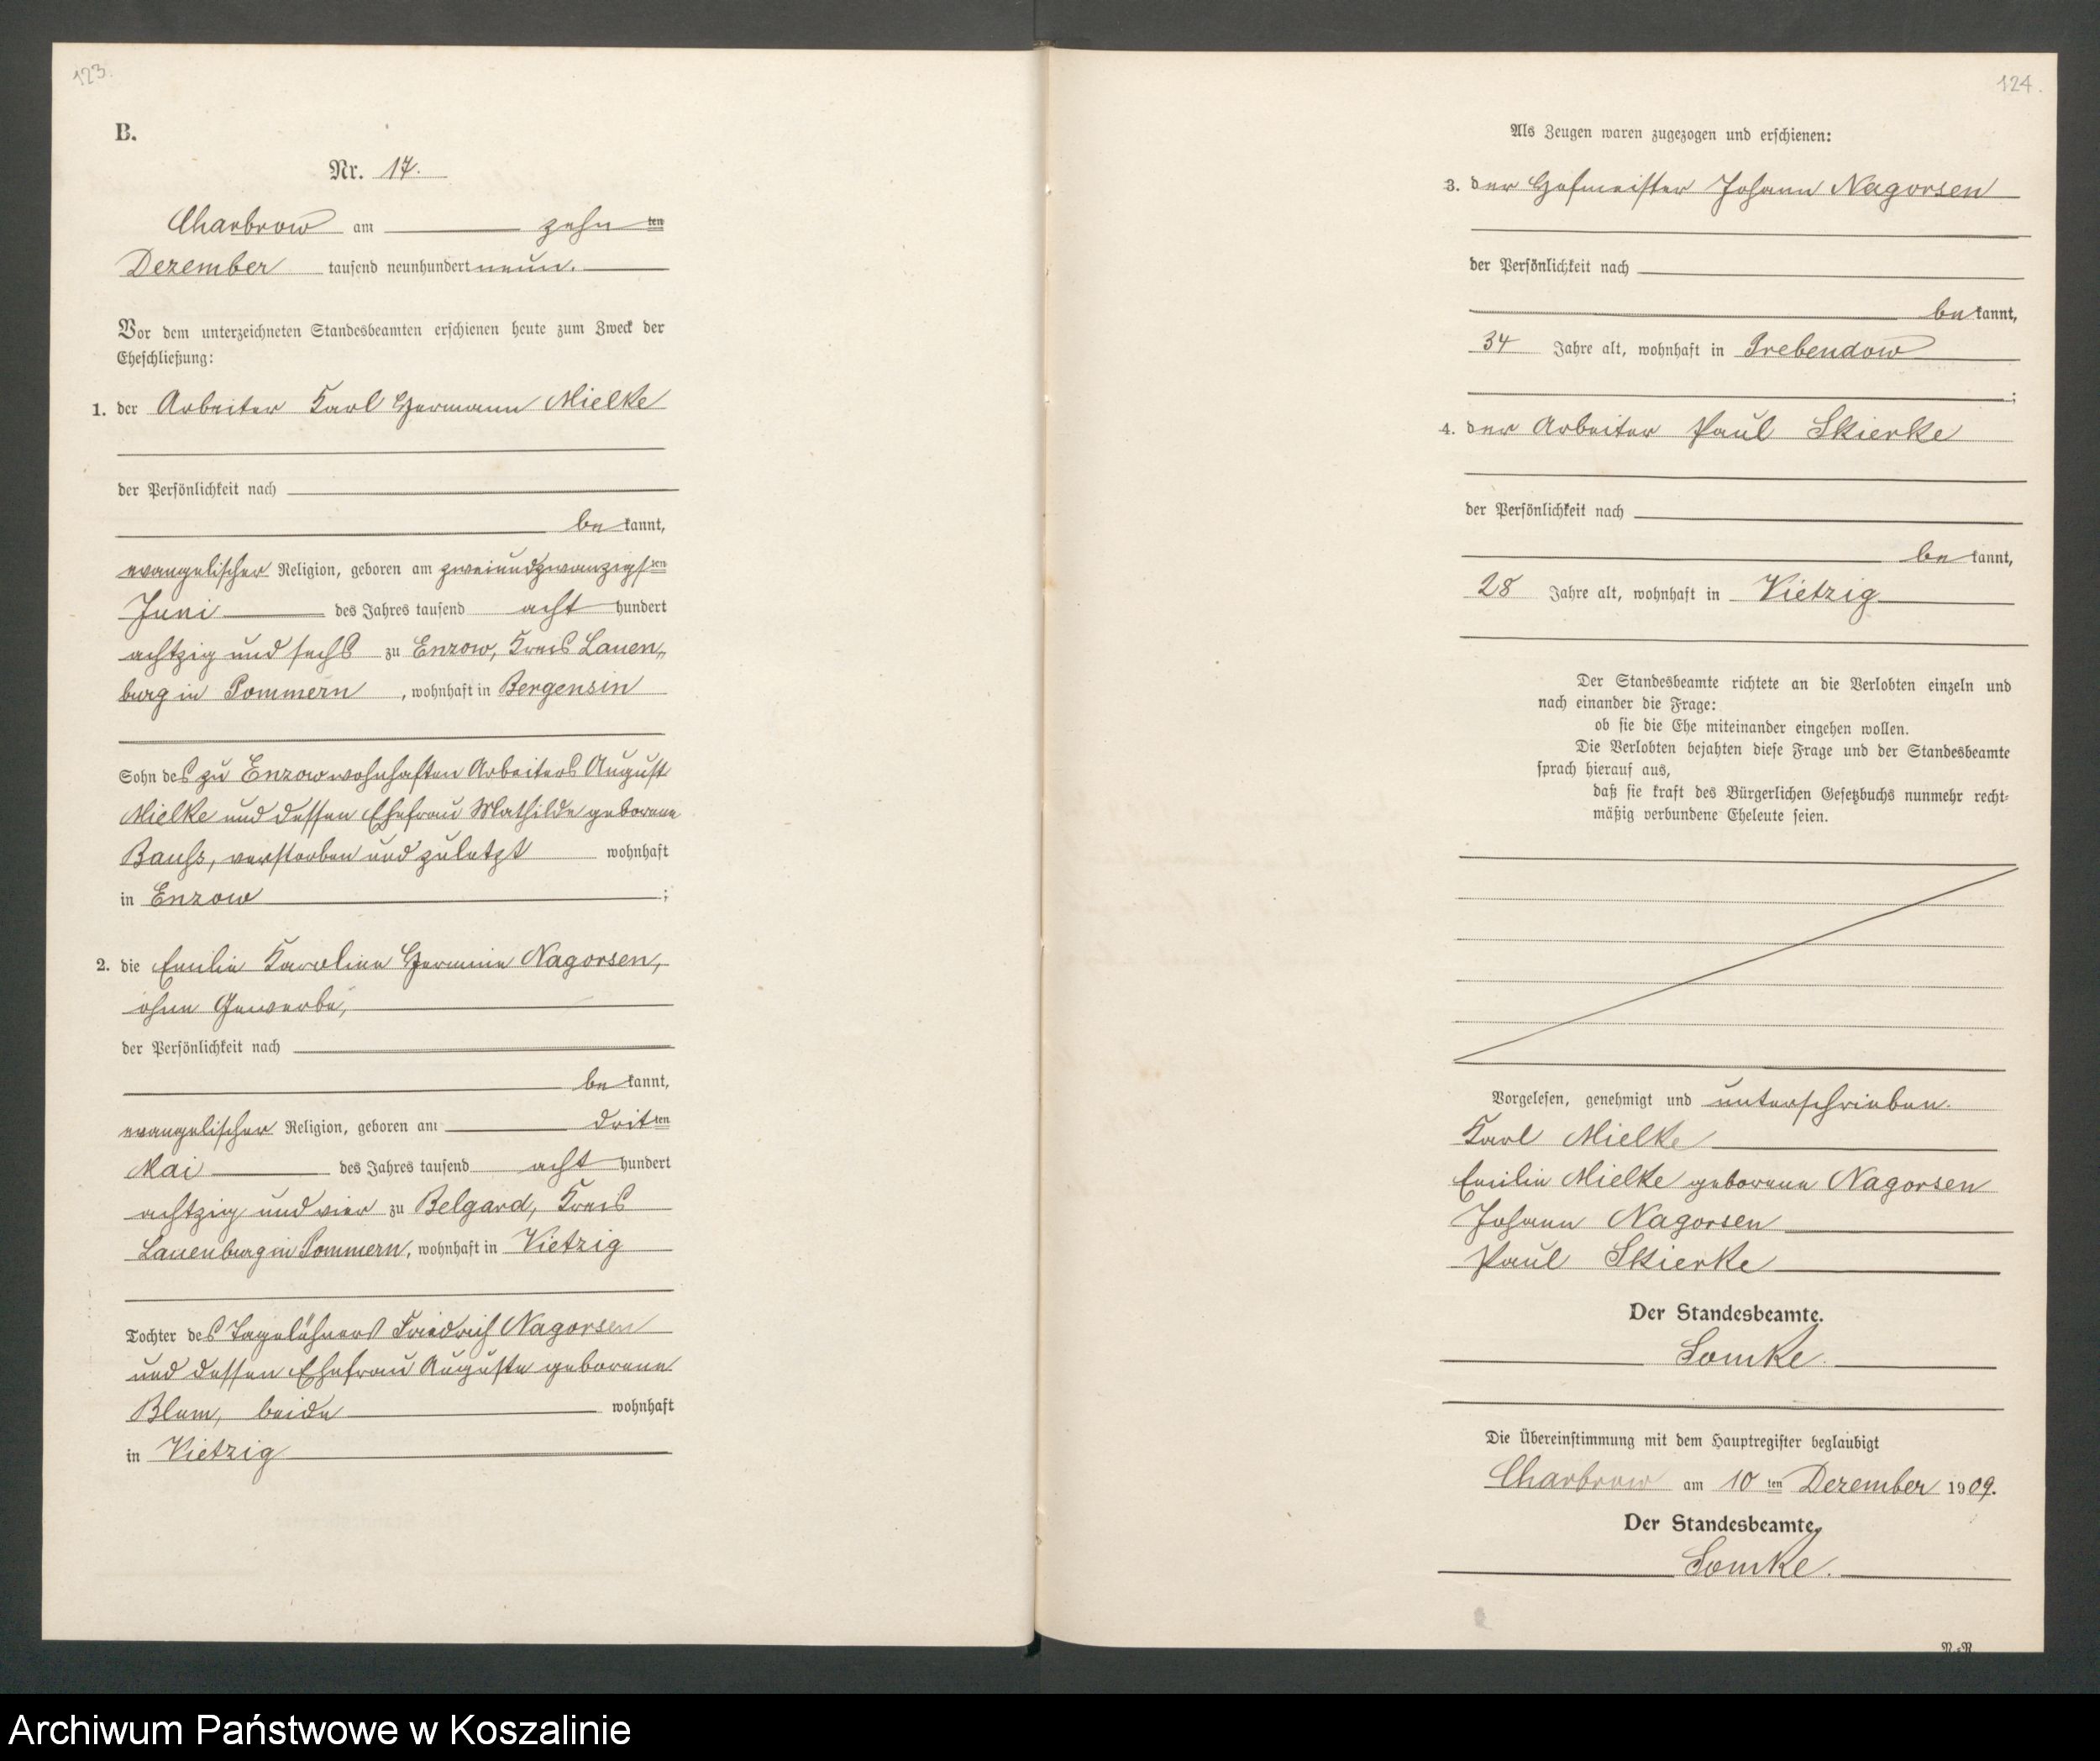 123.
B.
Nr. 17.
Charbrow am zehn ten
Dezember tausend neunhundert neun.
Vor dem unterzeichneten Standesbeamten erschienen heute zum Zweck der
Eheschließung:
1. der Arbeiter Karl Hermann Mielke
der Persönlichkeit nach
be kannt,
evangelischer Religion, geboren am zweiundzwanzigsten
Juni des Jahres tausend acht hundert
achtzig und sechs zu Enzow, Kreis Lauen„
burg in Pommern, wohnhaft in Bergensin
Sohn des zu Enzow wohnhaften Arbeiters August
Mielke und dessen Ehefrau Mathilde geborene
verstorben und zuletzt wohnhaft
in Enzow;
2. die Emilie Karoline Hermine Nagorsen,
ohne Gewerbe,
der Persönlichkeit nach
be kannt,
evangelischer Religion, geboren am dritten
Mai des Jahres tausend acht hundert
achtzig und vier zu Belgard, Kreis
Lauenburg in Pommern, wohnhaft in Vietzig
Tochter des Tagelöhners Friedrich Nagorsen
und dessen Ehefrau Auguste geborene
Blum, beide wohnhaft
in Vietzig
124.
Als Zeugen waren zugezogen und erschienen:
3. der Hofmeister Johann Nagorsen
der Persönlichkeit nach
be kannt,
34 Jahre alt, wohnhaft in Prebendow
;
4. der Arbeiter Paul Skierke
der Persönlichkeit nach
be kannt,
28 Jahre alt, wohnhaft in Vietzig
Der Standesbeamte richtete an die Verlobten einzeln und
nach einander die Frage:
ob sie die Ehe miteinander eingehen wollen.
Die Verlobten bejahten diese Frage und der Standesbeamte
sprach hierauf aus,
daß sie kraft des Bürgerlichen Gesetzbuchs nunmehr recht-
mäßig verbundene Eheleute seien.
Vorgelesen, genehmigt und unterschrieben.
Karl Mielke
Emilie Mielke geborene Nagorsen
Johann Nagorsen
Paul Skierke
Der Standesbeamte.
Lomke.
Die Übereinstimmung mit dem Hauptregister beglaubigt
Charbrow am 10 ten Dezember 1909.
Der Standesbeamte.
Lomke.
Archiwum Państwowe w Koszalinie